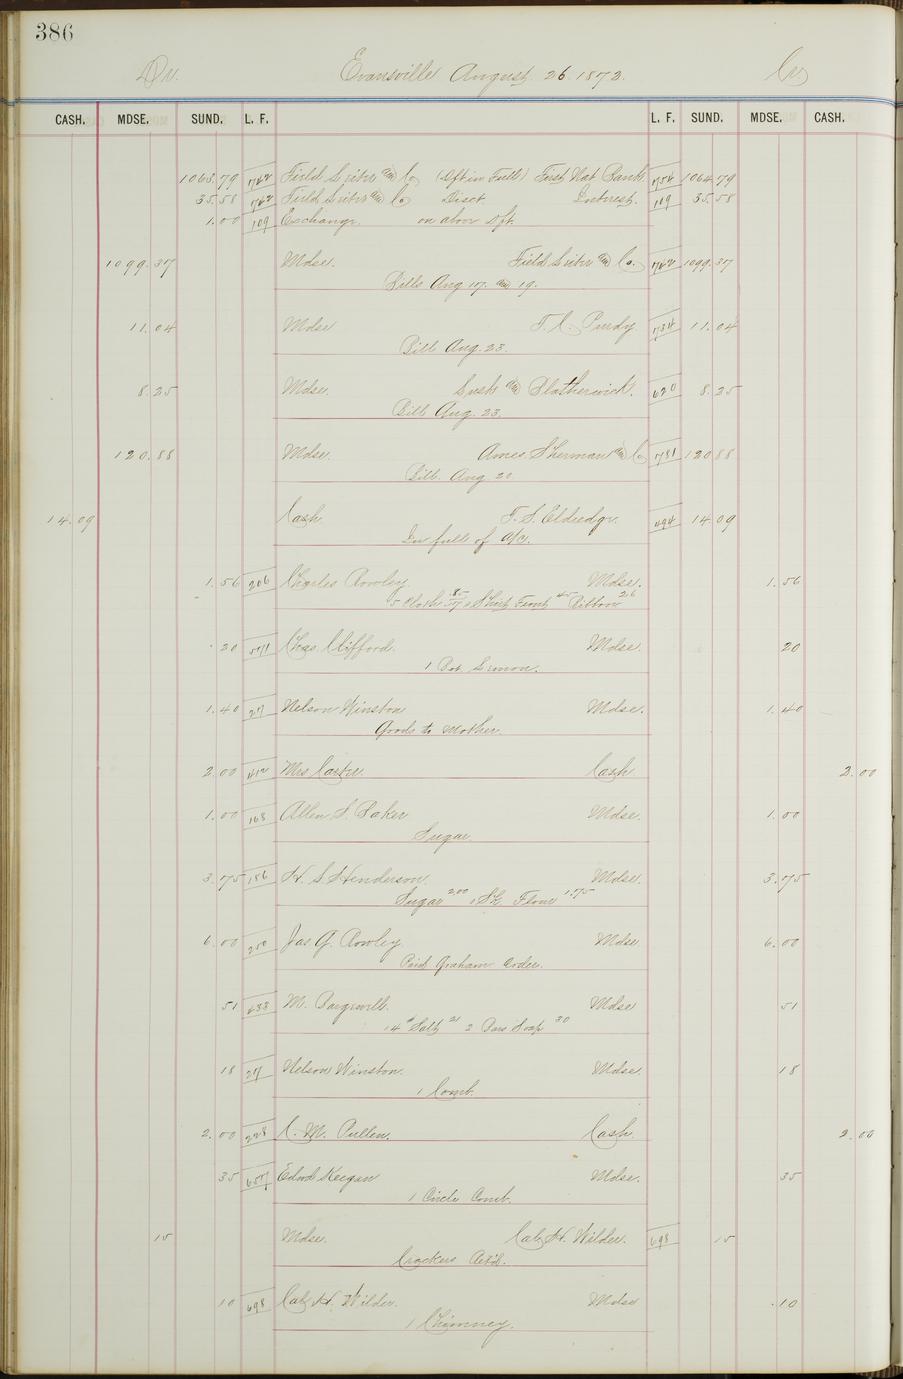 386
Dr. Evansville August 26 1872. Cr
CASH. MDSE. SUND. L. F. L. F. SUND. MDSE. CASH.
1063.79 762 Field Leiter & Co (dft in Full) First Nat Bank 1064.79
35.58 762 Field Leiter & Co Disct Interest. 109 35.58
1.00 109 Exchange. on above dft.
1099.37 Mdse. Field Leiter & Co. 762 1099.37
Bills Aug 17. & 19.
11.04 Mdse Purdy 11.04
Bill Aug. 23.
8.25 Mdse. & 620 8.25
Bill Aug. 23.
120.88 Mdse. Ames. Sherman & Co 120 88
Bill. Aug 20
14.09 Cash. Eldredge. 494 14.09
In full of a/c.
1.56 206 Charles Rowley Mdse. 1.56
5 Cloth 85 Shirt Front 45 Ribbon 26
.20 571 Chas. Clifford. Mdse. 20
1 Lemon.
1.40 27 Nelson Winston Mdse. 1.40
Goods to Mother.
2.00 412 Mrs Carter. Cash 2.00
1.00 168 Allen S. Baker Mdse. 1.00
Sugar.
3.75 186 H. S. Henderson. Mdse. 3.75
Sugar 2.00 Sk Flour 1.75
6.00 250 Jas Q. Rowley Mdse 6.00
Paid Graham Order.
51 633 M. Mdse 51
14 # Salt 21 2 Bars Soap 30
18 27 Nelson Winston. Mdse. 18
1 Comb.
2.00 228 C. M. Pullen. Cash. 2.00
35 657 Edwd Keegan Mdse. 35
1 Circle Comb.
15 Mdse. Cal. H. Wilder. 698 15
Crackers Ret'd.
10 698 Cal. H. Wilder. Mdse .10
1 Chimney.